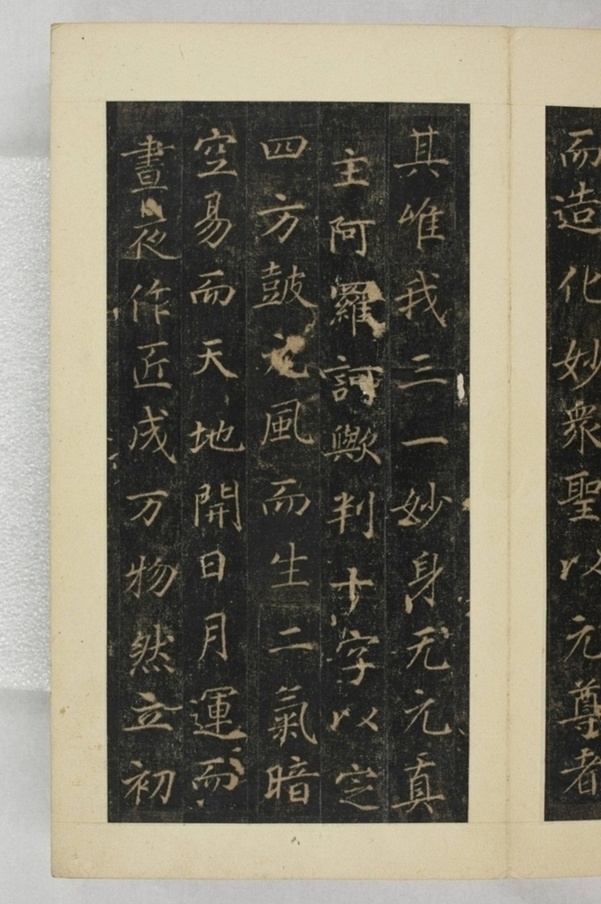 而造化妙衆聖以元尊者
其唯我三一妙身无元真
主阿羅訶歟判十字以定
四方鼓元風而生二氣暗
空易而天地開日月運而
晝夜作匠成万物然立初